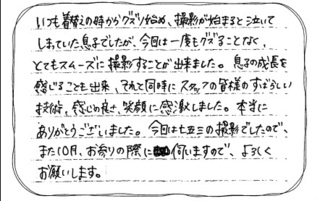 いつも着替えの時からグズり始め、撮影が始まると泣いて
しまっていた息子でしたが、今回は一度もグズることなく、
とてもスムーズに撮影することが出来ました。息子の成長を
感じることも出来、それと同時にスタッフの皆様のすばらしい
技術、感じの良さ、笑顔に感激しました。本当に
ありがとうございました。今回は七五三の撮影でしたので、
また10月、お参りの際に伺いますので、よろしく
お願いします。